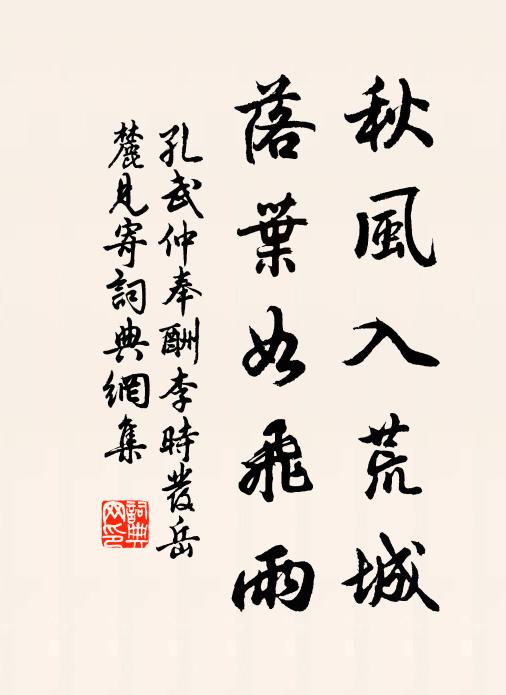 秋風入荒城
落葉如飛雨
孔武仲奉酬李時發岳
麓見寄詞典網集
詞典
网印